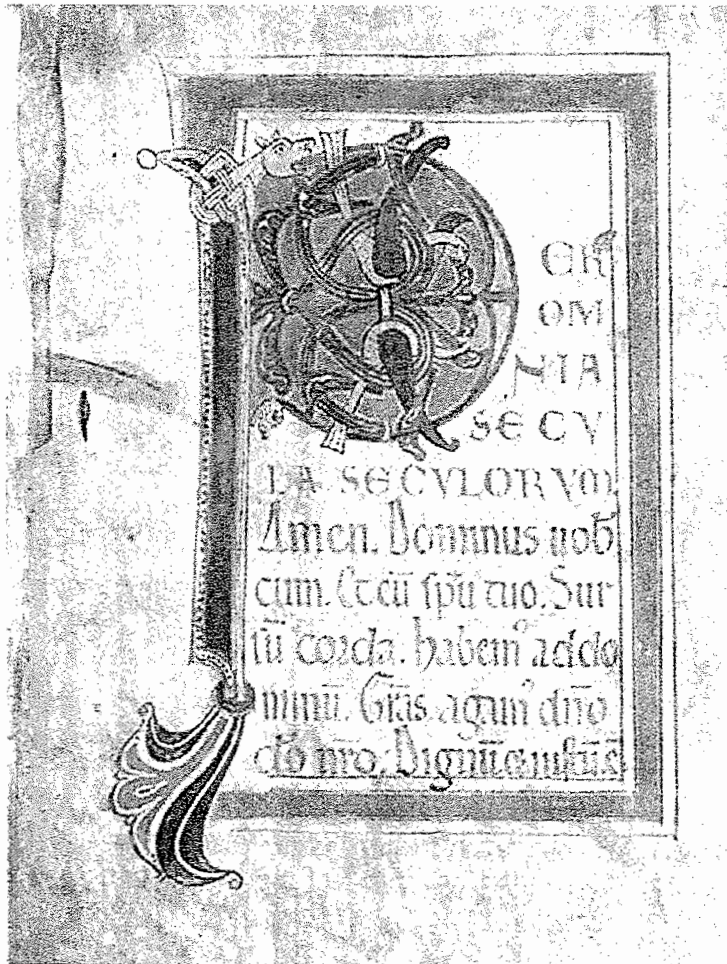 P
ER
OM
NIA
SECV
LA SECVLORVM
Amen. Dominus uob
cum. Et cū sp̄u tuo. Sur
sū corda. habemꝰ addo
minū. Gr̄as agamꝰ dn̄o
dō nr̄o. Dignū &iustū ē